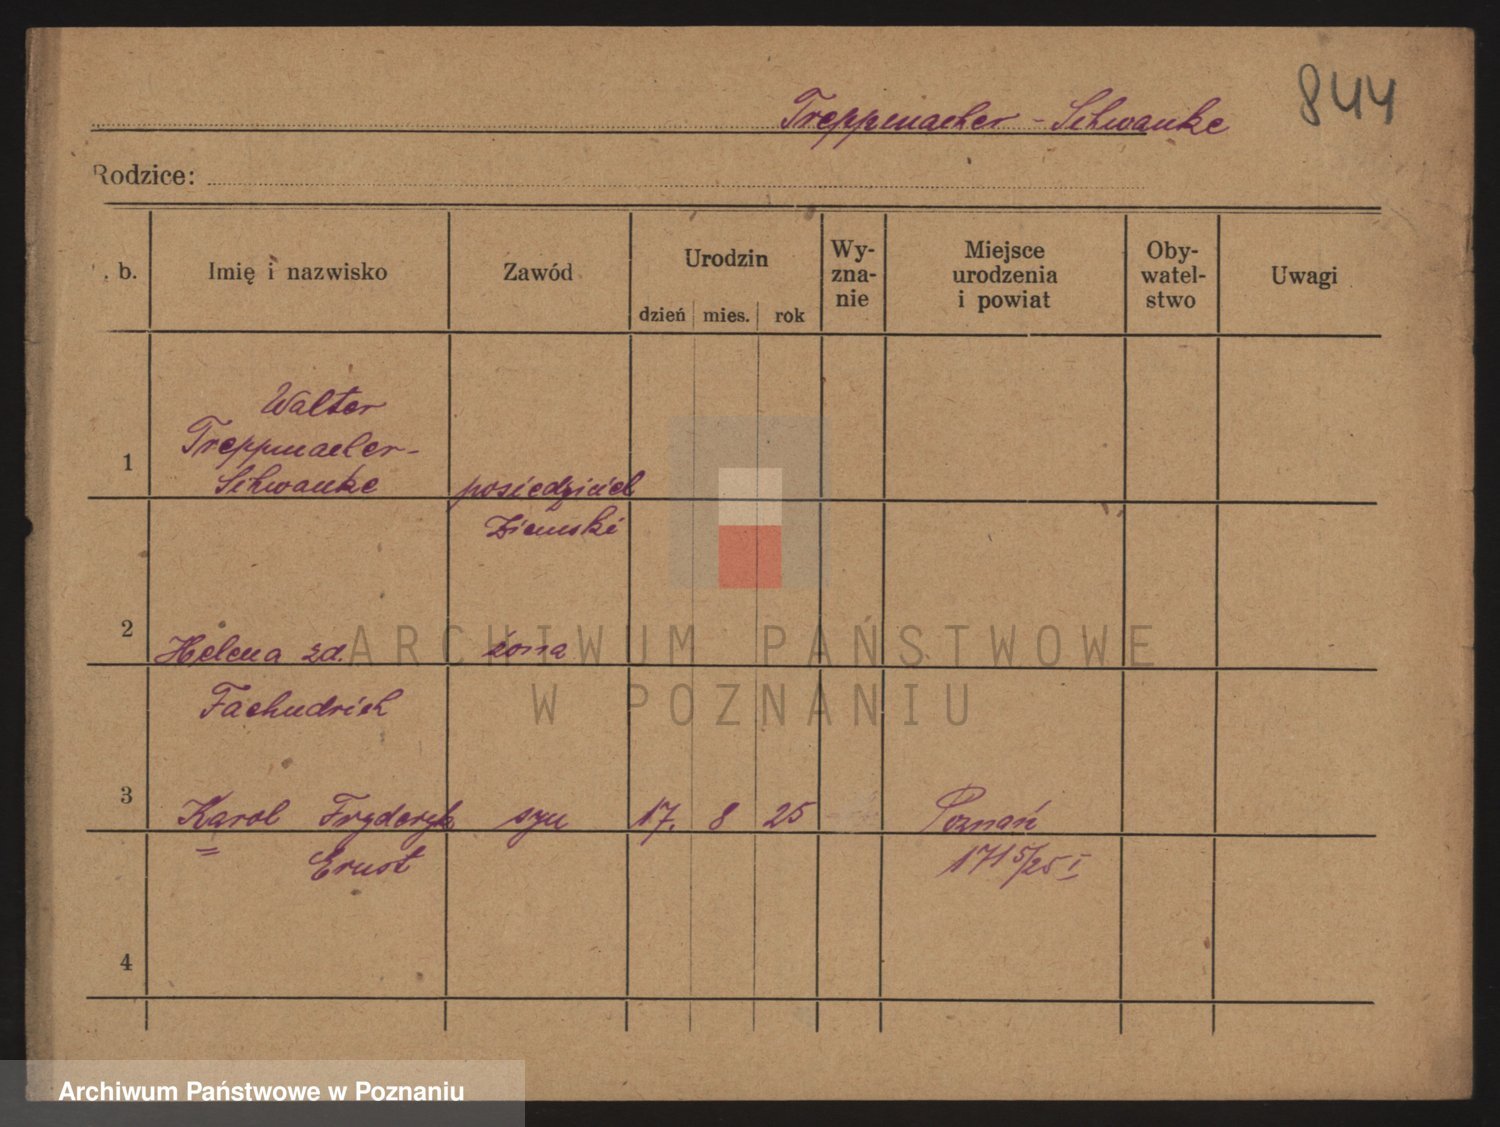 844
Treppmacher - Schwanke
Rodzice:
. b.
Imię i nazwisko
Zawód
Urodzin
dzień mies. rok
Wy-
zna-
nie
Miejsce
urodzenia
i powiat
Oby-
watel-
stwo
Uwagi
1
Walter
Treppmacher-
Schwanke
posiedziciel
Ziemski
2
Helena zd.
żona
Fachndrich
3
Karol Fryderyk
syn
17. 8 25
Poznań
Ernst
1715/25 I
4
ARCHIWUM PAŃSTWOWE
W POZNANIU
Archiwum Państwowe w Poznaniu